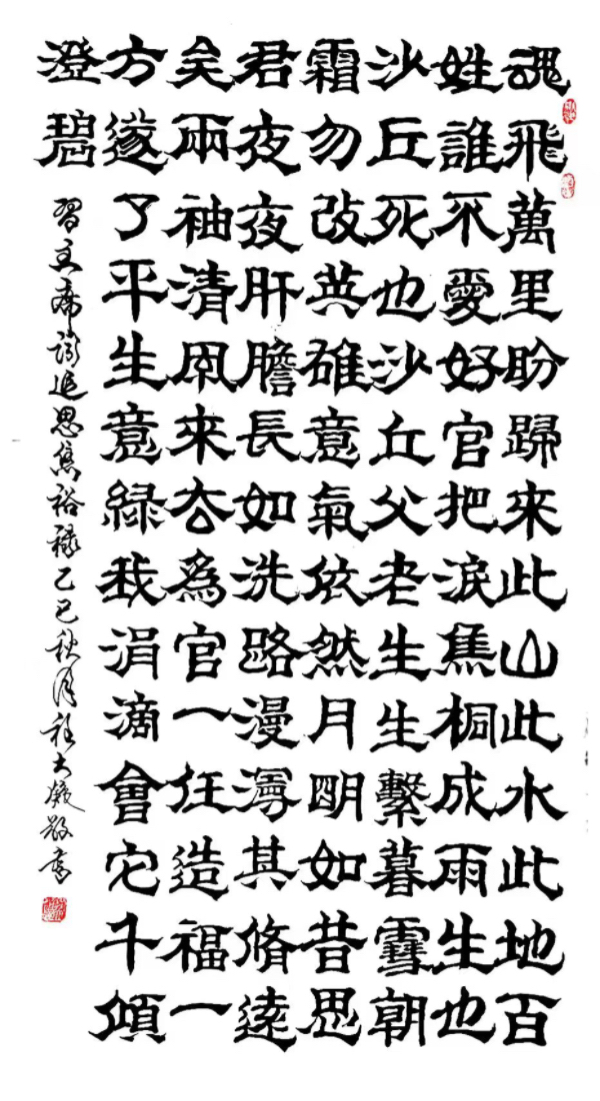 魂飛萬里盼歸來此山此水此地百
姓誰不愛好官把淚焦桐成雨生也
沙丘死也沙丘父老生生繫暮雪朝
霜勿改英雄意氣依然月明如昔思
君夜夜肝膽長如洗路漫漫其脩遠
矣兩袖清風來去為官一任造福一
方遂了平生意綠我涓滴會它千頃
澄碧
習主席詞追思焦裕祿乙巳秋月程大凝敬書